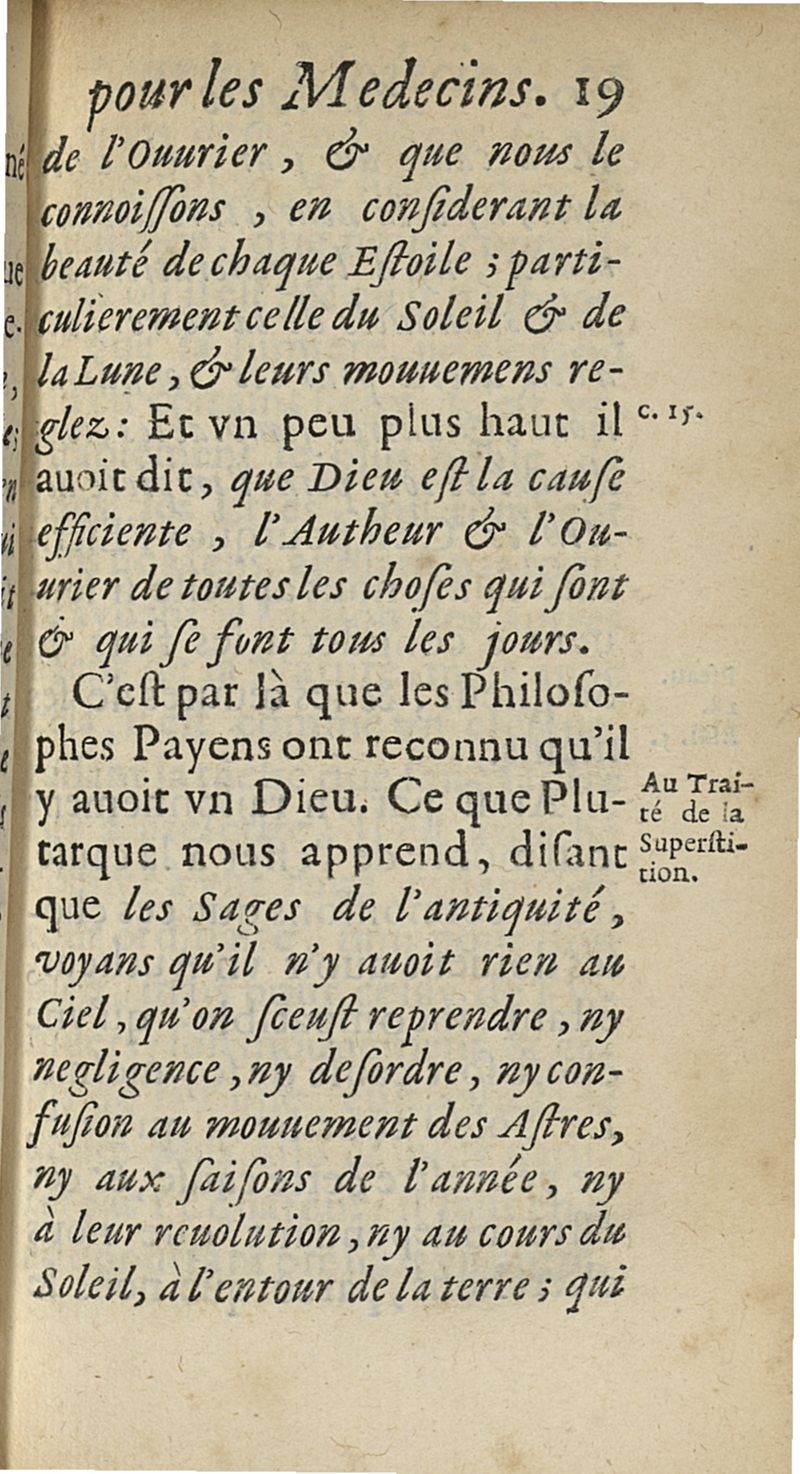 pour les Medecins. 19
de l'Ouurier, & que nous le
connoiſſons, en conſiderant la
beauté de chaque Eſtoile ; parti-
culierement celle du Soleil & de
la Lune, & leurs mouuemens re-
glez: Et vn peu plus haut il
c. 15.
auoit dit, que Dieu eſt la cauſe
efficiente, l'Autheur & l'Ou-
urier de toutes les choſes qui ſont
& qui ſe font tous les jours.
C'eſt par là que les Philoſo-
phes Payens ont reconnu qu'il
y auoit vn Dieu. Ce que Plu-
tarque nous apprend, diſant
Au Trai-
té de la
Superſti-
tion.
que les Sages de l'antiquité,
voyans qu'il n'y auoit rien au
Ciel, qu'on ſceuſt reprendre, ny
negligence, ny deſordre, ny con-
fuſion au mouuement des Aſtres,
ny aux ſaiſons de l'année, ny
à leur reuolution, ny au cours du
Soleil, à l'entour de la terre ; qui